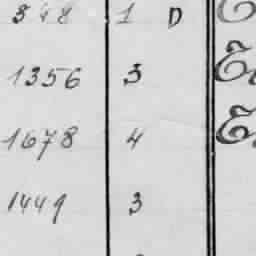 348 1 D
1356 3
1678 4
1449 3